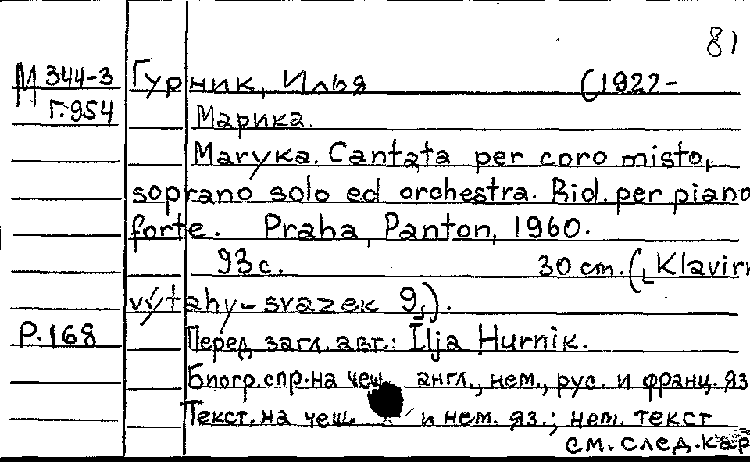 81
М 344-3 Гурник, Илья (1922-
Г.954 Марика.
Maryka. Cantata per coro misto,
soprano solo ed orchestra. Rid. per piano
forte. Praha, Panton, 1960.
93 с. 30 cm. („Klavirn
výtahy-svazek 9„).
Р.168 Перед загл. авт.: Ilja Hurnik.
Биогр. спр. на чеш. англ., нем., рус. и франц. яз
Текст. на чеш. и нем. яз.; нем. текст
см. след. кар